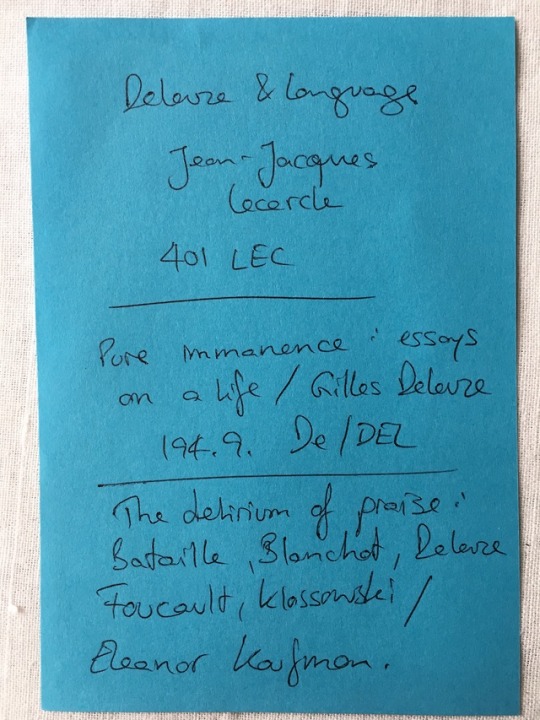 Deleuze & Language
Jean-Jacques
Lecercle
401 LEC
Pure immanence : essays
on a life / Gilles Deleuze
194.9. De/DEL
The delirium of praise :
Bataille, Blanchot, Deleuze
Foucault, Klossowski /
Eleanor Kaufman.